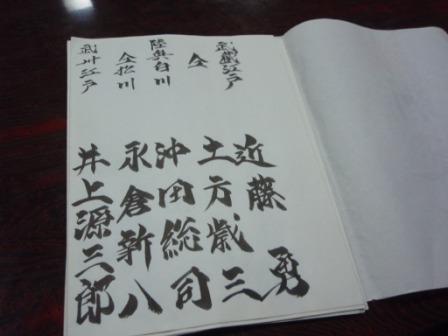 武蔵江戸 近藤勇
仝 土方歳三
陸奥白川 沖田総司
仝松川 永倉新八
武州江戸 井上源三郎